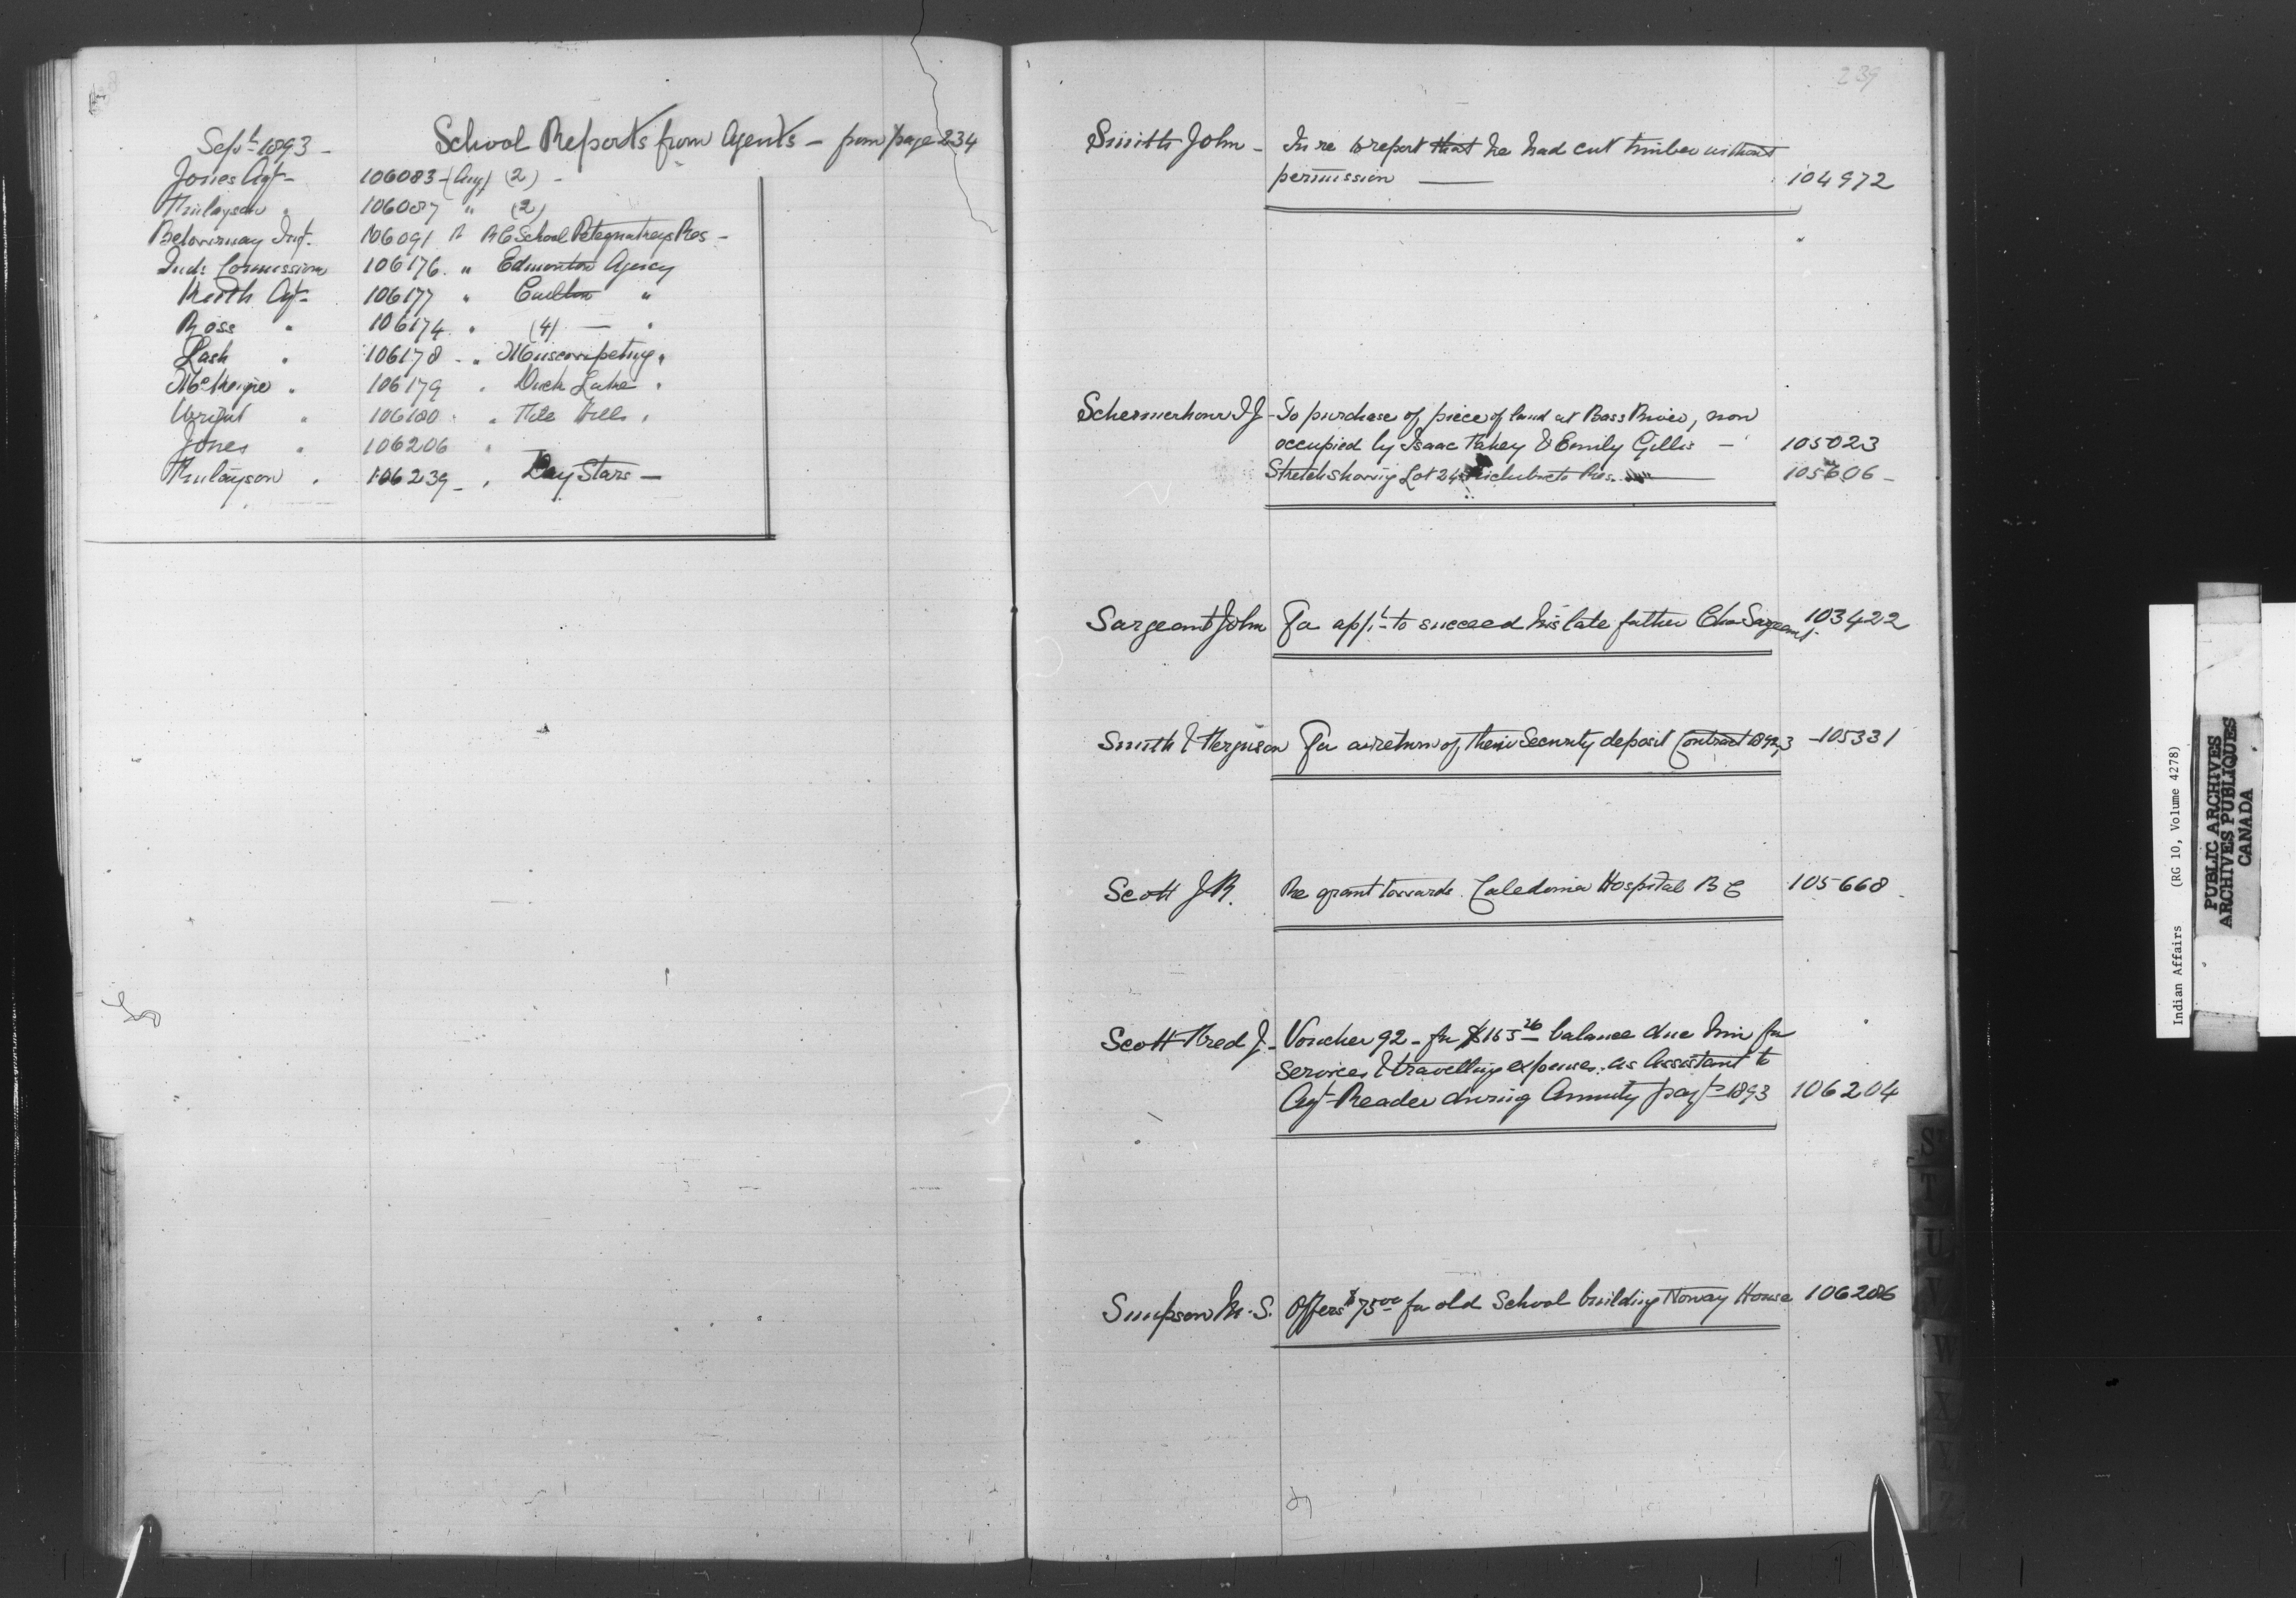 238
Sept 1893 -
School Reports from Agents - from page 234
Jones Agt - 106083 - (Aug) (2) -
Finlayson " 106087 " (2)
Betournay Inst. 106091 " RC School Peteguakeys Res -
Ind: Commission 106176 . " Edmonton Agency
Keith Agt - 106177 " Carlton "
Ross " 106174 . " (4) — "
Lash " 106178 - " Muscowpetung "
McKenzie " 106179 " Duck Lake "
Wright " 106180 . " File Hills "
Jones " 106206 "
Finlayson " 106239 - " Day Stars -
239
Smith John - In re to report that he had cut timber without
permission — 104972
Schermerhorn I J - To purchase of piece of land at Bass River, now
occupied by Isaac Fahey & Emily Gillis - 105023
Sketch showing Lot 24 Richibucto Res. — 105606 -
Sargeant John For appt to succeed his late father Chas Sargeant 103422
Smith & Ferguson For a return of their Security deposit Contract 1892/3 - 105331
Scott J R. Re grant towards Caledonia Hospital B C 105668 -
Scott Fred J. - Voucher 92 - for $165 26 balance due him for
services & travelling expenses as Assistant to
Agt Reader during Annuity payts 1893 106204
Simpson M. S. Offers $75 00 for old School building Norway House 106286
S
T
U
W
X
Y
Z
Indian Affairs (RG 10, Volume 4278)
PUBLIC ARCHIVES
ARCHIVES PUBLIQUES
CANADA